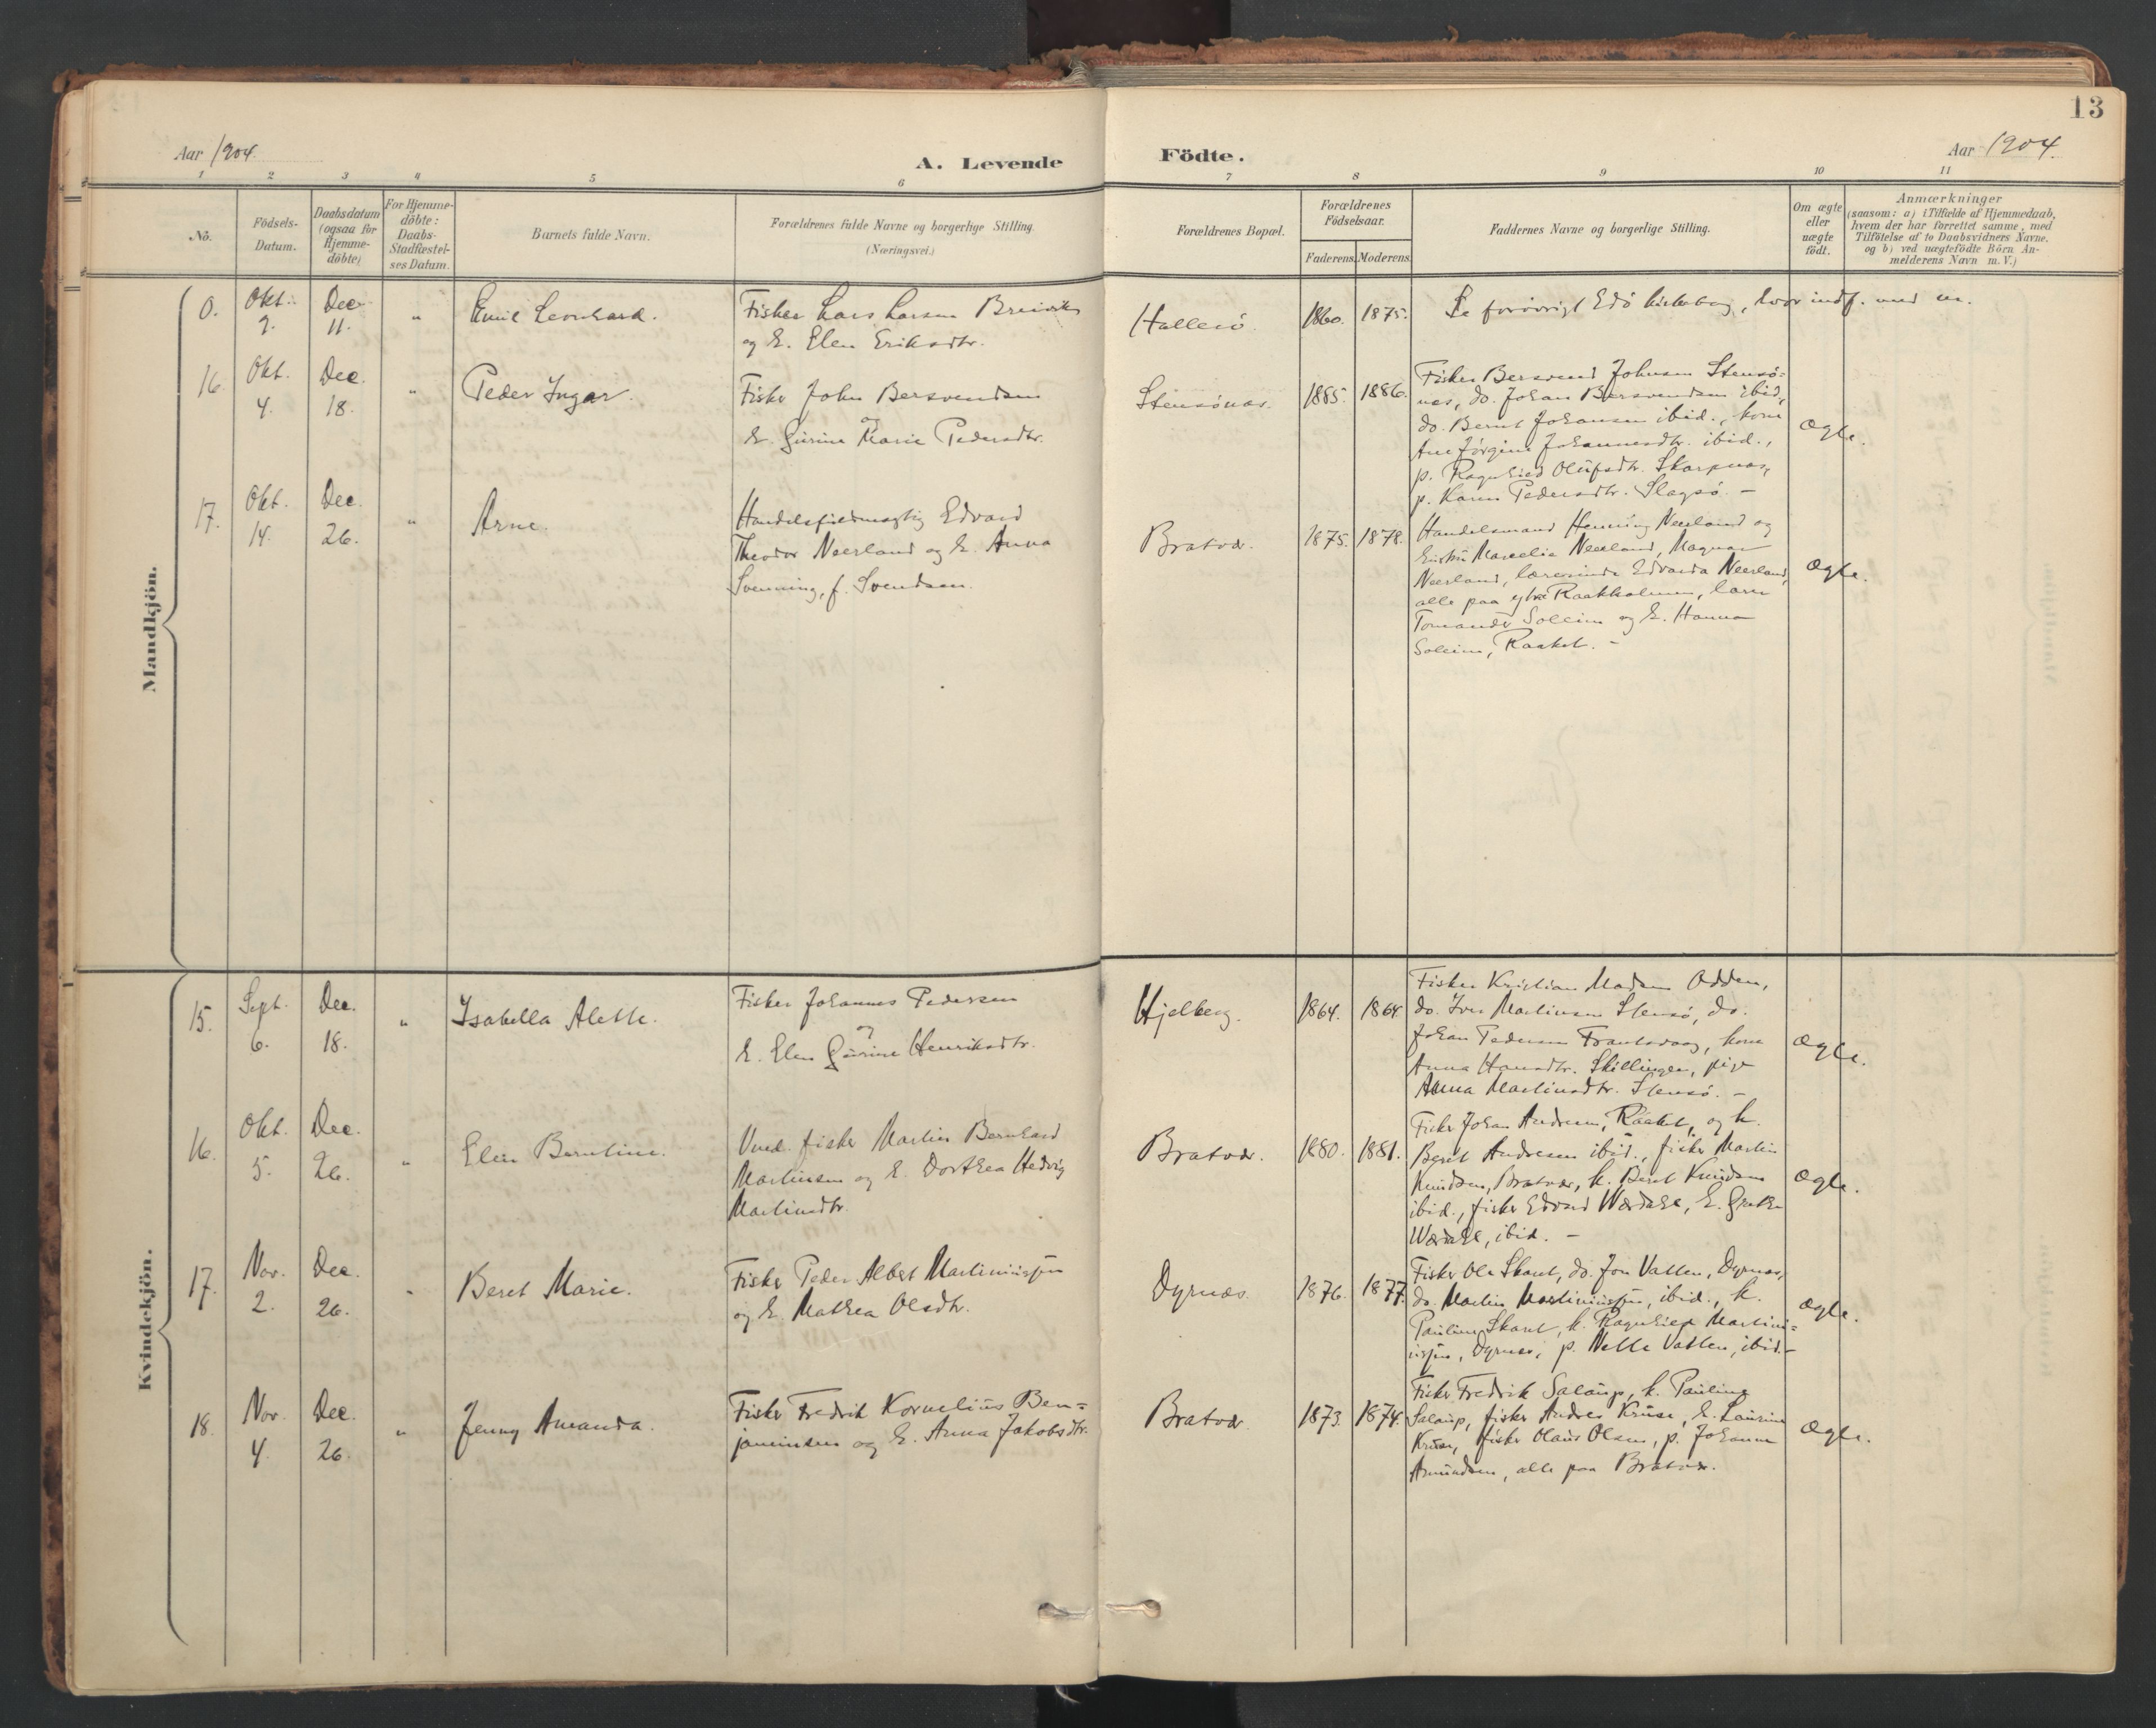 13
Aar 1904.
A. Levende
Födte.
Aar 1904.
1 2 3 4 5 6 7 8 9 10 11
No.
Födsels-
Datum.
Daabsdatum
(ogsaa for
Hjemme-
döbte)
For Hjemme-
döbte:
Daabs-
Stadfæstel-
ses Datum.
Barnets fulde Navn.
Forældrenes fulde Navne og borgerlige Stilling.
(Næringsvei.)
Forældrenes Bopæl.
Forældrenes
Födselsaar.
Faderens. Moderens.
Faddernes Navne og borgerlige Stilling.
Om ægte
eller
uægte
födt.
Anmærkninger
(saasom: a) i Tilfælde af Hjemmedaab,
hvem der har forrettet samme, med
Tilföielse af to Daabsvidners Navne,
og b) ved uægtefödte Börn An-
melderens Navn m. V.)
Mandkjön.
0.
Okt.
Dec.
11.
"
Emil Leonhard.
Fisker Lars Larsen
og h. Elen Eriksdtr.
1860. 1875.
Se forövrigt Edö kirkebog, hvor indf. med nr.
16.
Okt.
4.
Dec.
18.
"
Peder Ingar.
Fisker John Bersvendsen
og
h. Gurine Marie Pedersdtr.
Stensönæs.
1885. 1886.
Fisker Bersvend Johnsen Stensö=
næs, do. Johan Bersvendsen ibid.,
do. Bernt Johansen ibid., kone
Ane Jörgine Johannesdtr. ibid.,
p. Ragnhild Olufsdtr. Skarpnæs,
p. Karen Pedersdtr. Slagsö. -
Ægte.
17.
Okt.
14.
Dec.
26.
"
Arne.
Handelsfuldmægtig Edvard
Theodor Neerland og h. Anna
Svenning, f. Svendsen.
Bratvær.
1875. 1878.
Handelsmand Henning Neerland og
hustru Marcelie Neerland, Magnar
Neerland, lærerinde Edvarda Neerland,
alle paa ytre Raakholmen, lærer
Tomander Soleim og h. Hanna
Soleim, Raaket. -
Ægte.
Kvindekjön.
15.
Sept.
6.
Dec.
18.
"
Isabella Alette.
Fisker Johannes Pedersen
og
h. Elen Gurine Henriksdtr.
Hjelberg.
1864. 1864.
Fisker Kristian Madsen Odden,
do. Iver Martinsen Stensö, do.
Johan Pedersen kone
Anna Hansdtr. Skillingen, pige
Anna Martinsdtr. Stensö. -
Ægte.
16.
Okt.
5.
Dec.
26.
"
Elen Berntine.
Vmed. fisker Martin Bernhard
Martinsen og h. Dorthea Hedvig
Martinsdtr.
Bratvær.
1880. 1881.
Fisker Johan Andresen, Raaket, og k.
Beret Andresen ibid., fisker Martin
Knudsen, Bratvær, k. Beret Knudsen
ibid., fisker Edvard Wærdahl, h. Grethe
Wærdahl, ibid. -
Ægte.
17.
Nov.
2.
Dec.
26.
"
Beret Marie.
Fisker Peder Albert Martiniussen
og h. Mathea Olsdtr.
Dyrnæs.
1876. 1877.
Fisker Ole Skaret, do. Jon Vatten, Dyrnæs,
do. Martin Martiniussen, ibid., k.
Pauline Skaret, k. Ragnhild Martini=
ussen, Dyrnæs, p. Nelle Vatten, ibid. -
Ægte.
18.
Nov.
4.
Dec.
26.
"
Jenny Amanda.
Fisker Fredrik Kornelius Ben=
jaminsen og h. Anna Jakobsdtr.
Bratvær.
1873. 1874.
Fisker Fredrik Salaup, k. Pauline
Salaup, fisker Andres Kruse, h. Laurine
Kruse, fisker Olaus Olsen, p. Johanne
Amundsen, alle paa Bratvær.
Ægte.